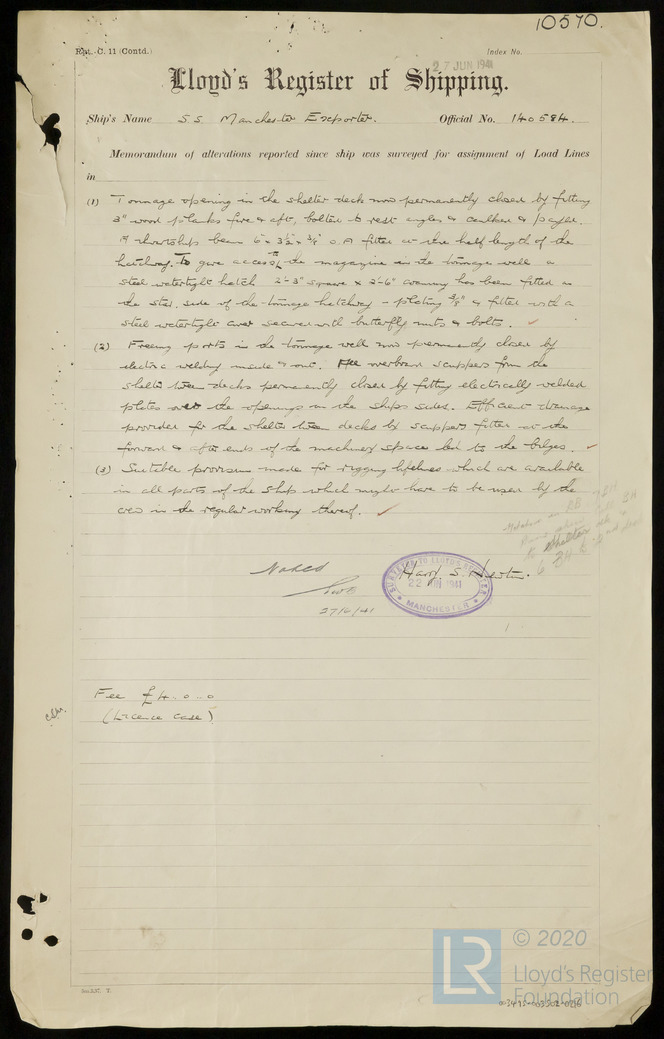 10570.
Rpt. C. 11 (Contd.)
Index No.
27 JUN 1941
Lloyd's Register of Shipping.
Ship's Name S.S. Manchester Exporter. Official No. 140584.
Memorandum of alterations reported since ship was surveyed for assignment of Load Lines
in
(1) Tonnage opening in the shelter deck now permanently closed by fitting
3" wood planks fore & aft, bolted to rest angles & caulked & payed.
A thwartship beam 6" x 3½" x ⅜" O.A fitted at the half length of the
hatchway. To give access to the magazine in the tonnage well a
steel watertight hatch 2'-3" square x 2'-6" coaming has been fitted in
the star. side of the tonnage hatchway - plating ⅜" & fitted with a
steel watertight cover secured with butterfly nuts & bolts.
(2) Freeing ports in the tonnage well now permanently closed by
electric welding inside & out. All overboard scuppers from the
shelter tween decks permanently closed by fitting electrically welded
plates over the openings in the ships sides. Efficient drainage
provided for the shelter tween decks by scuppers fitted at the
forward & after ends of the machinery space led to the bilges.
(3) Suitable provision made for rigging lifelines which are available
in all parts of the ship which might have to be used by the
crew in the regular working thereof.
the Shelter dk
Noted
27/6/41
Harry S. Newton.
SURVEYOR TO LLOYD'S REGISTER
22 JUN 1941
MANCHESTER
Fee £4.0.0
(Licence case)
5m.3.37. T.
© 2020
LR
Lloyd's Register
Foundation